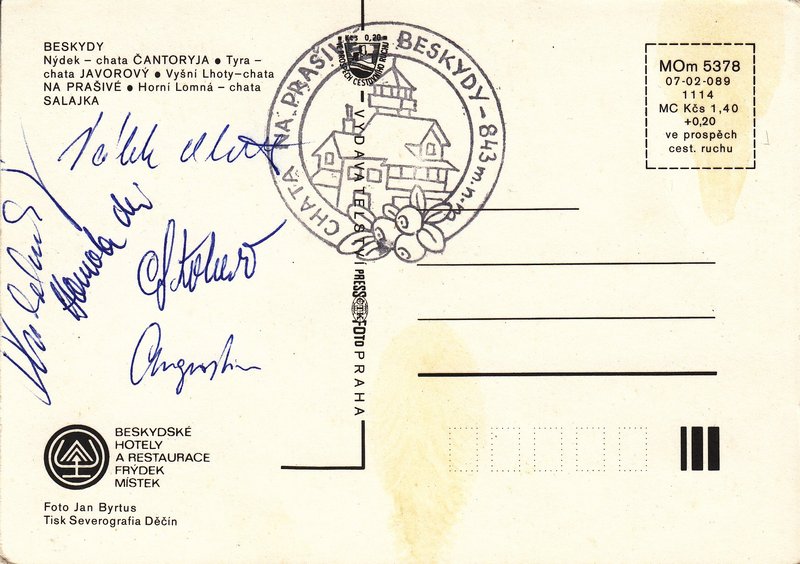 BESKYDY
Nýdek – chata ČANTORYJA ● Tyra –
chata JAVOROVÝ ● Vyšní Lhoty–chata
NA PRAŠIVÉ ● Horní Lomná – chata
SALAJKA
Kčs 0,20
VE PROSPĚCH CESTOVNÍHO RUCHU
CHATA NA PRAŠIVÉ BESKYDY – 843 m. n. m.
MOm 5378
07-02-089
1114
MC Kčs 1,40
+0,20
ve prospěch
cest. ruchu
VYDAVATELSTVÍ PRESSFOTO PRAHA
Augustin
BESKYDSKÉ
HOTELY
A RESTAURACE
FRÝDEK
MÍSTEK
Foto Jan Byrtus
Tisk Severografia Děčín